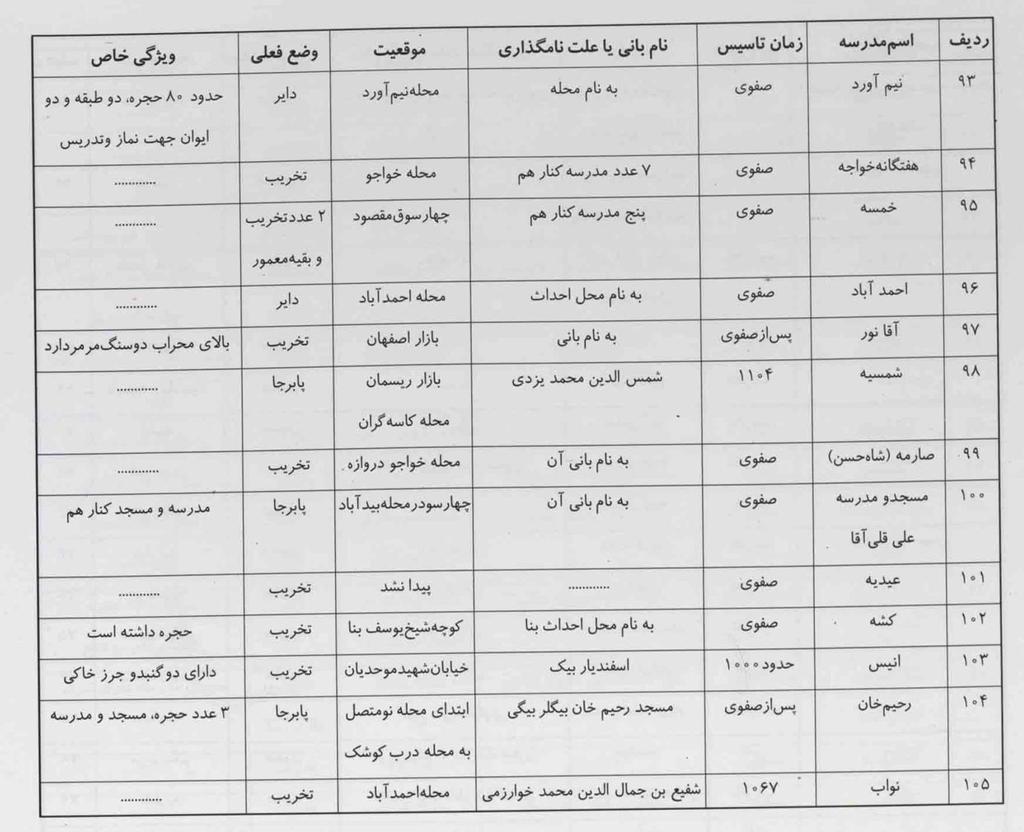 ردیف اسم مدرسه زمان تاسیس نام بانی یا علت نامگذاری موقعیت وضع فعلی ویژگی خاص
۹۳ نیم آورد صفوی به نام محله محله نیم آورد دایر حدود ۸۰ حجره، دو طبقه و دو
ایوان جهت نماز وتدریس
۹۴ هفتگانه خواجه صفوی ۷ عدد مدرسه کنار هم محله خواجو تخریب ............
۹۵ خمسه صفوی پنج مدرسه کنار هم چهارسوق مقصود ۲ عدد تخریب ............
و بقیه معمور
۹۶ احمد آباد صفوی به نام محل احداث محله احمدآباد دایر ............
۹۷ آقا نور پس از صفوی به نام بانی بازار اصفهان تخریب بالای محراب دوسنگ مرمر دارد
۹۸ شمسیه ۱۱۰۴ شمس الدین محمد یزدی بازار ریسمان پابرجا ............
محله کاسه گران
۹۹ صارمه (شاه حسن) صفوی به نام بانی آن محله خواجو دروازه تخریب ............
۱۰۰ مسجدو مدرسه صفوی به نام بانی آن چهارسودرمحله بیدآباد پابرجا مدرسه و مسجد کنار هم
علی قلی آقا
۱۰۱ عیدیه صفوی ............ پیدا نشد تخریب ............
۱۰۲ کشه صفوی به نام محل احداث بنا کوچه شیخ یوسف بنا تخریب حجره داشته است
۱۰۳ انیس حدود ۱۰۰۰ اسفندیار بیک خیابان شهید موحدیان تخریب دارای دو گنبدو جرز خاکی
۱۰۴ رحیم خان پس از صفوی مسجد رحیم خان بیگلر بیگی ابتدای محله نومتصل پابرجا ۳ عدد حجره، مسجد و مدرسه
به محله درب کوشک
۱۰۵ نواب ۱۰۶۷ شفیع بن جمال الدین محمد خوارزمی محله احمدآباد تخریب ............